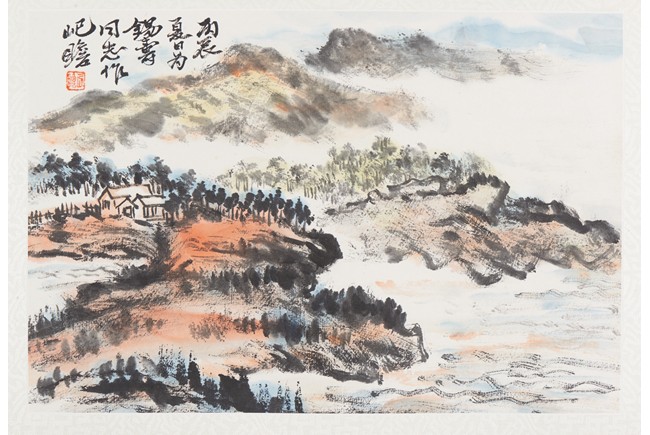 丙辰
夏日为
锡寿
同志作
屺瞻